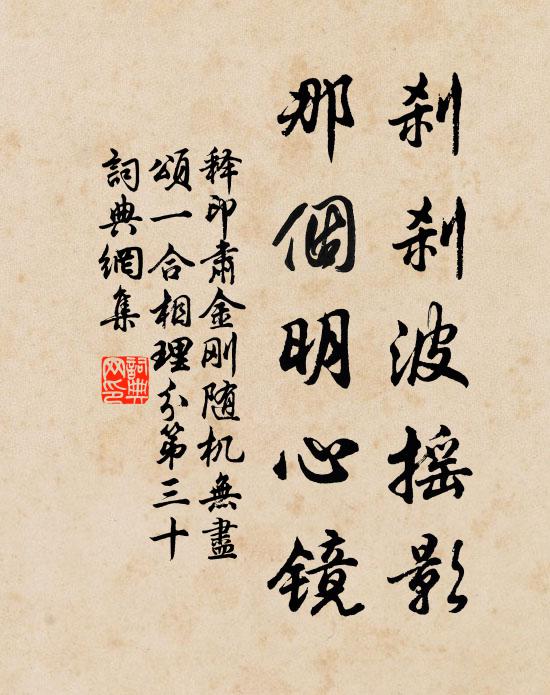 刹刹波摇影
那個明心镜
释印肃金刚随机無盡
頌一合相理分第三十
詞典網集
詞典
网印